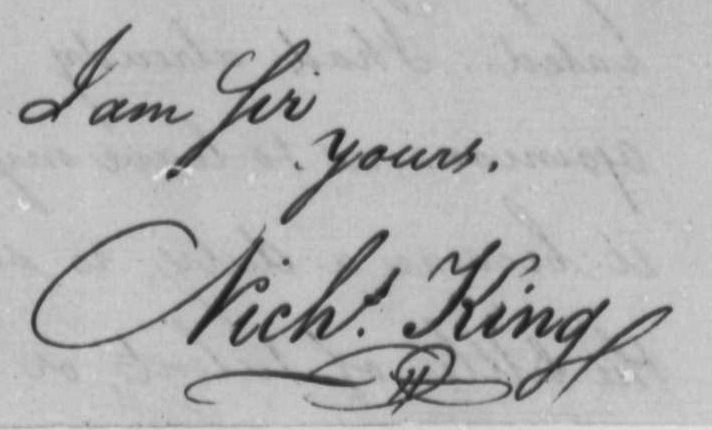 I am Sir
yours.
Nichs. King